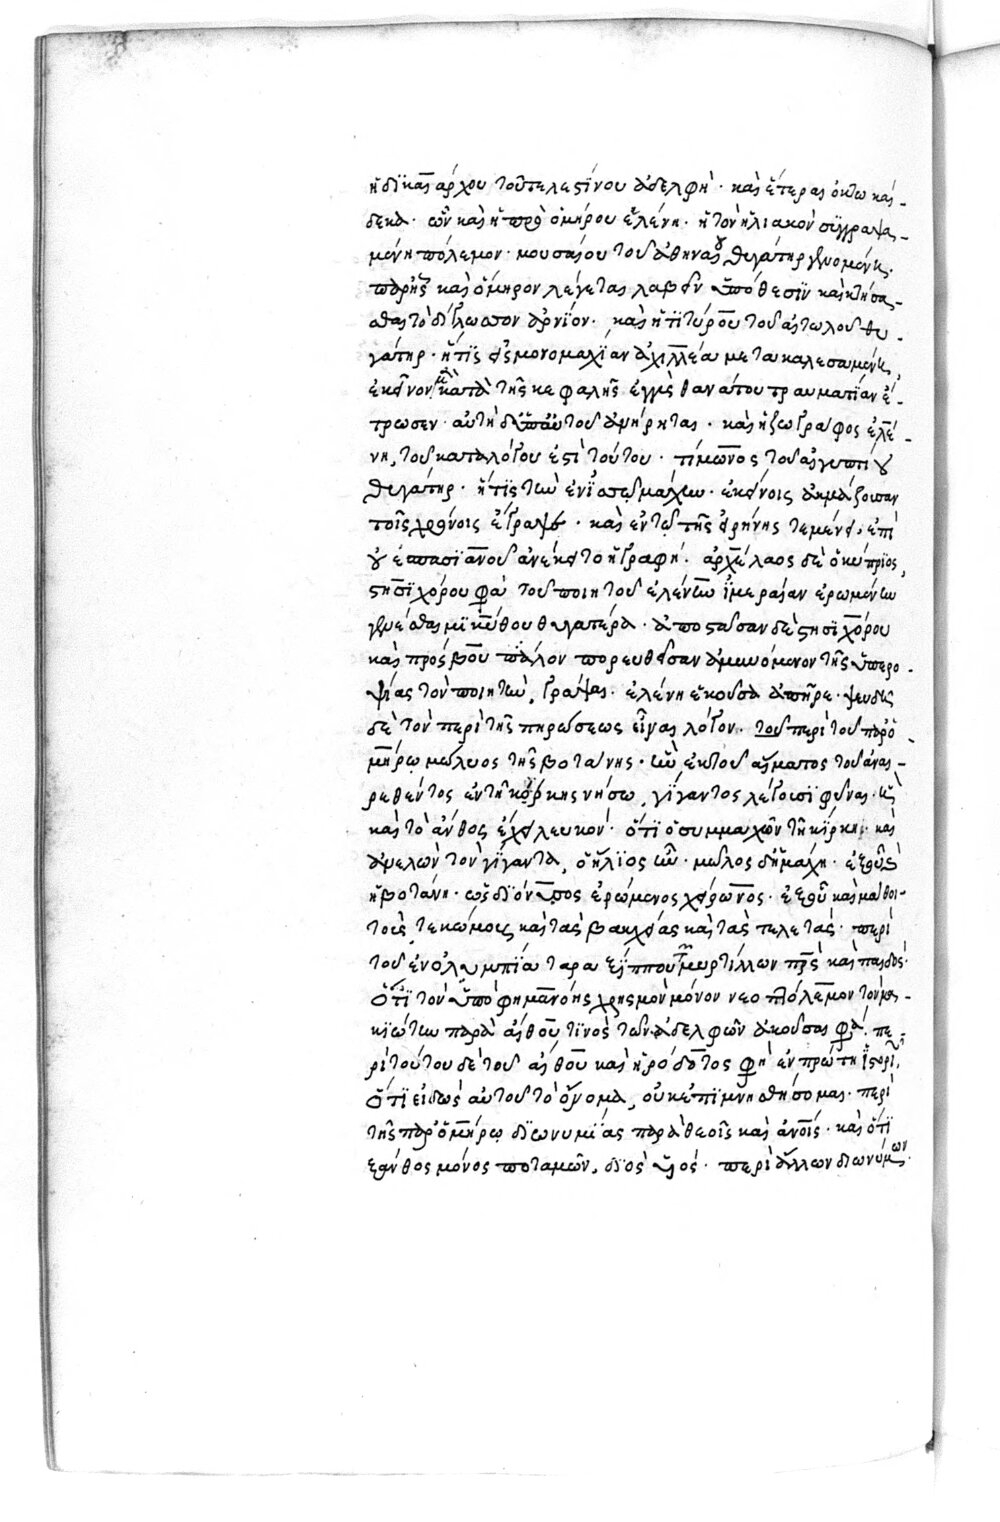 ἡ δϊκαὶ αρχου τοῦ τελεστίνου ἀδελφὴ · καὶ ἕτεραι ὀκτωκαί-
δεκα · ὧν καὶ ἡ πρὸ ὁμήρου ἑλένη · ἡ τὸν ἠλιακὸν συγγραψα-
μένη πόλεμον · μουσαίου τοῦ ἀθηναίου θυγάτηρ γενομένη,
παρ' ἧς καὶ ὅμηρον λέγεται λαβεῖν ὑπόθεσϊν καὶ κτήσα-
σθαι τὸ δίγλωσσον ἀρνϊον · καὶ ἡ τϊτύρου τοῦ αἰτωλοῦ θυ-
γάτηρ · ἥτϊς εἰς μονομαχϊαν ἀχιλλέα μετακαλεσαμένη,
ἐκεῖνον μὲν κατὰ τῆς κεφαλῆς ἐγγὺς θανάτου τραυματϊαν ἔ-
τρωσεν · αὐτὴ δ' ὑπ' αὐτοῦ ἀνήρηται · καὶ ἡ ζωγράφος ἑλέ-
νη, τοῦ καταλόγου ἐστὶ τούτου · τίμωνος τοῦ αἰγυπτίου
θυγάτηρ · ἥτϊς τὴν ἐν ϊσσῷ μάχην · ἐκείνοις ἀκμάζουσαν
τοῖς χρόνοις ἔγραψε · καὶ ἐν τῷ τῆς εἰρήνης τεμένει, ἐπὶ
οὐεσπασϊανοῦ ἀνέκειτο ἡ γραφή · ἀρχέλαος δὲ ὁ κύπρϊος,
στησϊχόρου φησὶ τοῦ ποιητοῦ ἑλένην ϊμεραίαν ἐρωμένην
γενέσθαι μϊκύθου θυγατέρα · ἀποστᾶσαν δὲ στησϊχόρου
καὶ πρὸς βούπαλον πορευθεῖσαν ἀμυνόμενον τῆς ὑπερο-
ψίας τὸν ποιητὴν, γράψαι · ἑλένη ἑκοῦσα ἀπῆρε · ψευδῆ
δὲ τὸν περὶ τῆς πηρώσεως εἶναι λόγον · τοῦ περὶ τοῦ παρ' ὁ-
μήρῳ μώλυος τῆς βοτάνης · ἣν ἐκ τοῦ αἵματος τοῦ ἀναι-
ρεθέντος ἐν τῇ κίρκης νήσῳ, γίγαντος λέγουσϊ φῦναι · ἣ
καὶ τὸ ἄνθος ἔχει λευκόν · ὅτϊ ὁ συμμαχῶν τῇ κίρκῃ καὶ
ἀνελὼν τὸν γίγαντα, ὁ ἥλϊος ἦν · μῶλος δ' ἡ μάχη · ἐξ οὗ
ἡ βοτάνη · ὡς δϊόνυσος ἐρώμενος χείρωνος · ἐξ οὗ καὶ μάθοι
τούς τε κώμους καὶ τὰς βακχείας καὶ τὰς τελετάς · περὶ
τοῦ ἐν ὀλυμπίᾳ ταραξίππου μυρτίλλων πατρὸς καὶ παιδός ·
ὅτϊ τὸν ὑποφημονόης χρησμὸν μόνον νεοπτόλεμον τὸν μα-
κϊώτην παρὰ αἴθου τϊνὸς τῶν ἀδελφῶν ἀκοῦσαι φησί. πε-
ρὶ τούτου δὲ τοῦ αἴθου καὶ ἡρόδοτος φησὶ ἐν πρώτῃ ἱστορϊῶν,
ὅτϊ εἰδὼς αὐτοῦ τὸ ὄνομα, οὐκ ἐπϊμνησθήσομαι · περὶ
τῆς παρ' ὁμήρῳ δϊωνυμϊας παρὰ θεοῖς καὶ ἀνοις · καὶ ὅτϊ
ξάνθος μόνος ποταμῶν, δϊὸς υἱός · περὶ ἄλλων δϊωνύμων.